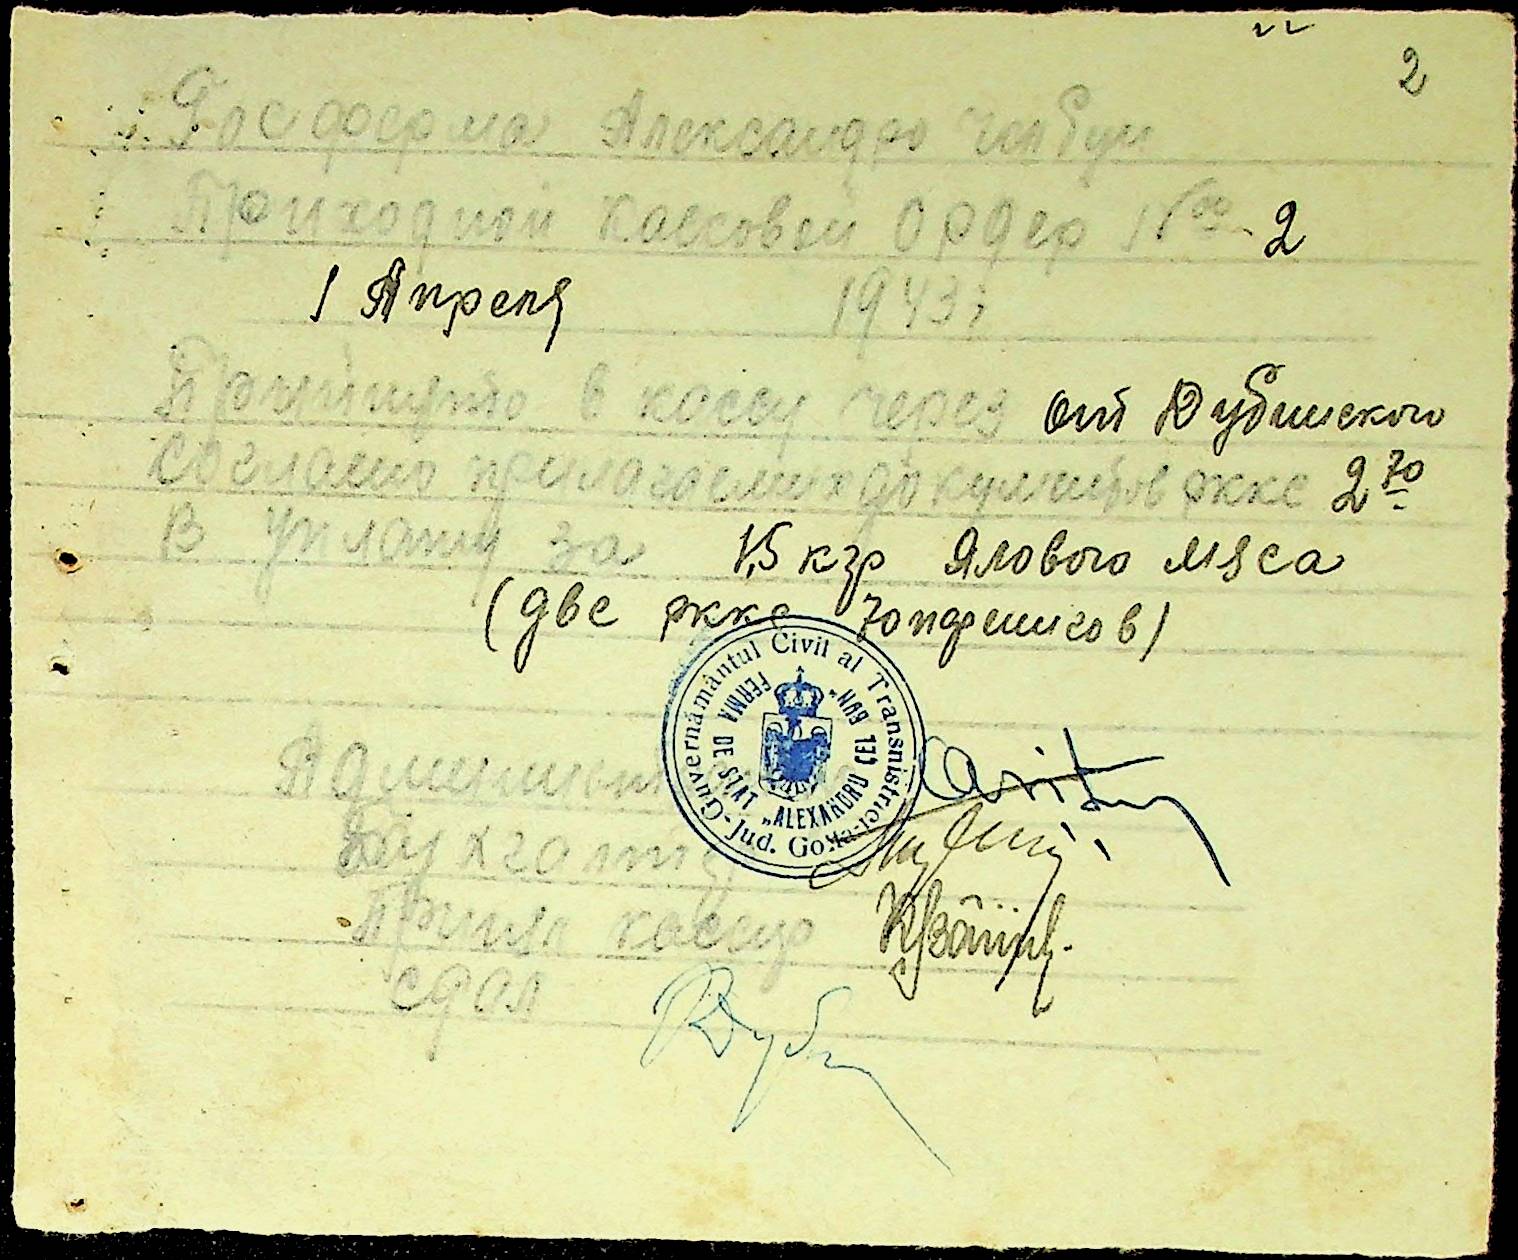 2
Госферма Александро челбун
Приходной Кассовей Ордер № 2
1 Апреля 1943г
Принято в кассу через от Дубинского
согласно прилагаемих документов рккс 2 70
В уплату за 1,5 кгр Ялового мяса
(две рккс 70 пфенигов)
Guvernământul Civil al Transnistriei-Jud. Golta-
FERMA DE STAT „ALEXANDRU CEL BUN”
Администратор
Бухгалтер
Принял кассир
сдал